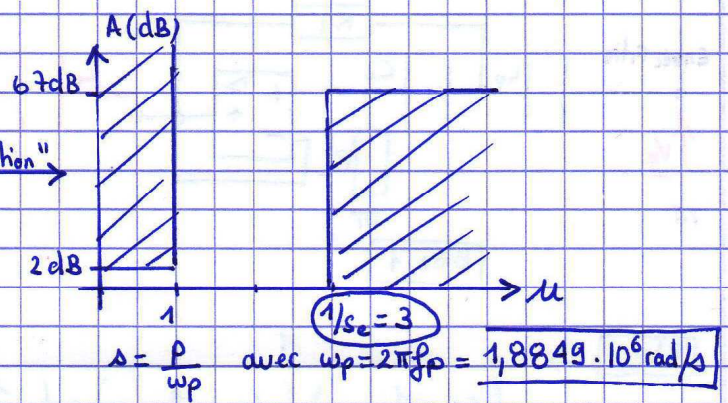 A(dB)
67dB
2dB
1
1/Se = 3
u
s = p/ωp avec ωp = 2πfp = 1,8849.10⁶ rad/s